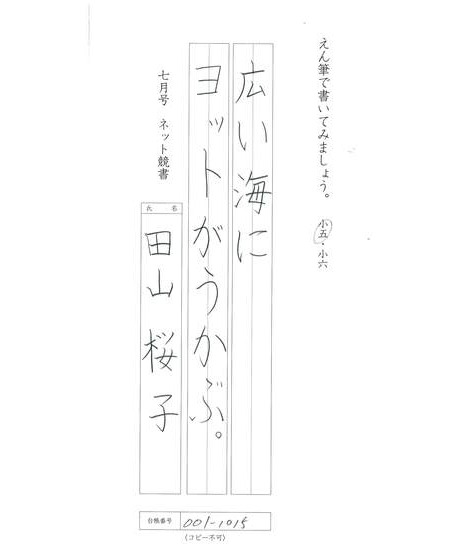 えん筆で書いてみましょう。 小五・小六
広い海に
ヨットがうかぶ。
七月号 ネット競書
氏名
田山桜子
台帳番号 001-1015
(コピー不可)